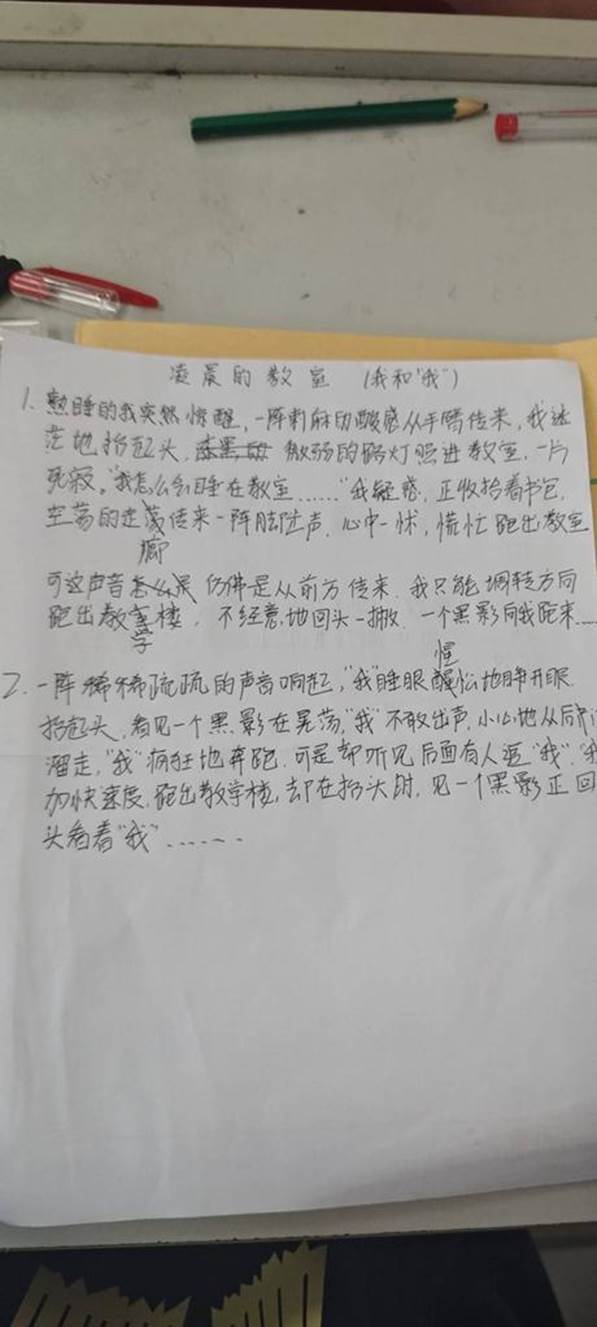 凌晨的教室 (我和"我")
1. 熟睡的我突然惊醒,一阵刺麻的酸感从手臂传来,我迷
茫地抬起头,微弱的路灯照进教室,一片
死寂。"我怎么会睡在教室……"我疑惑,正收拾着书包,
空荡的走廊传来一阵脚步声,心中一怵,慌忙跑出教室
可这声音仿佛是从前方传来,我只能调转方向
跑出教学楼,不经意地回头一撇,一个黑影向我跑来……
2. 一阵稀稀疏疏的声音响起,"我"睡眼惺忪地睁开眼,
抬起头,看见一个黑影在晃荡,"我"不敢出声,小心地从后门
溜走,"我"疯狂地奔跑,可是却听见后面有人追"我","我
加快速度,跑出教学楼,却在抬头时,见一个黑影正回
头看着"我"……